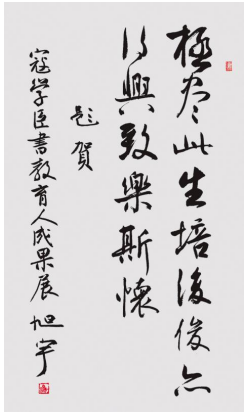 極尽此生培後俊亦
以興致樂斯懷
題賀
寇學臣書教育人成果展 旭宇